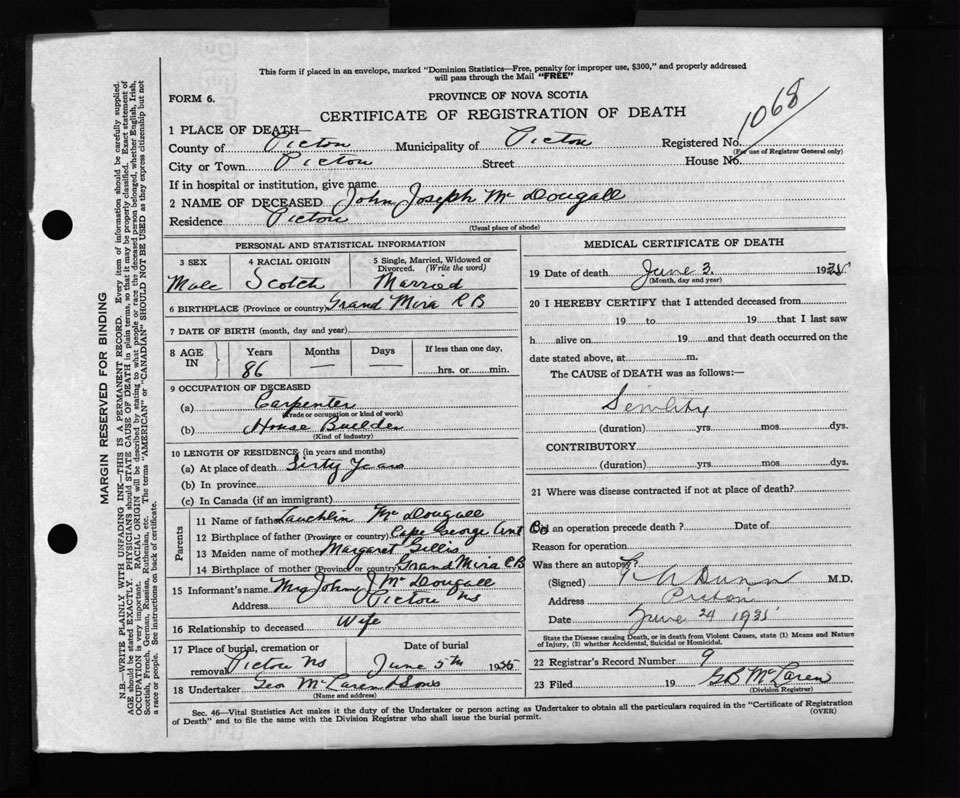 This form if placed in an envelope, marked "Dominion Statistics—Free, penalty for improper use, $300," and properly addressed
will pass through the Mail "FREE"
FORM 6.
PROVINCE OF NOVA SCOTIA
CERTIFICATE OF REGISTRATION OF DEATH
1068
1 PLACE OF DEATH—
County of Pictou Municipality of Pictou Registered No.
(For use of Registrar General only)
City or Town Pictou Street House No.
If in hospital or institution, give name
2 NAME OF DECEASED John Joseph Mc Dougall
Residence Pictou
(Usual place of abode)
PERSONAL AND STATISTICAL INFORMATION
3 SEX 4 RACIAL ORIGIN 5 Single, Married, Widowed or Divorced. (Write the word)
Male Scotch Married
6 BIRTHPLACE (Province or country) Grand Mira C B
7 DATE OF BIRTH (month, day and year)
8 AGE IN Years Months Days If less than one day,
86 — — hrs. or min.
9 OCCUPATION OF DECEASED
(a) Carpenter
(Trade or occupation or kind of work)
(b) House Builder
(Kind of industry)
10 LENGTH OF RESIDENCE (in years and months)
(a) At place of death Sixty Years
(b) In province
(c) In Canada (if an immigrant)
Parents
11 Name of father Lauchlin Mc Dougall
12 Birthplace of father (Province or country) Cape George Ant
13 Maiden name of mother Margaret Gillis
14 Birthplace of mother (Province or country) Grand Mira C B
15 Informant's name Mrs John J Mc Dougall
Address Pictou NS
16 Relationship to deceased Wife
17 Place of burial, cremation or removal Date of burial
Pictou NS June 5th 1935
18 Undertaker Geo McLaren & Sons
(Name and address)
MEDICAL CERTIFICATE OF DEATH
19 Date of death June 3. 1935
(Month, day and year)
20 I HEREBY CERTIFY that I attended deceased from
19 to 19 that I last saw
h alive on 19 and that death occurred on the
date stated above, at m.
The CAUSE of DEATH was as follows:—
Senility
(duration) yrs. mos. dys.
CONTRIBUTORY
(duration) yrs. mos. dys.
21 Where was disease contracted if not at place of death?
Did an operation precede death ? Date of
Reason for operation
Was there an autopsy?
(Signed) Dunn M.D.
Address Pictou
Date June 24 1935
State the Disease causing Death, or in death from Violent Causes, state (1) Means and Nature
of Injury, (2) whether Accidental, Suicidal or Homicidal.
22 Registrar's Record Number 9
23 Filed 19 G B McLaren
(Division Registrar)
Sec. 46—Vital Statistics Act makes it the duty of the Undertaker or person acting as Undertaker to obtain all the particulars required in the "Certificate of Registration
of Death" and to file the same with the Division Registrar who shall issue the burial permit.
(OVER)
MARGIN RESERVED FOR BINDING
N.B.—WRITE PLAINLY WITH UNFADING INK—THIS IS A PERMANENT RECORD. Every item of information should be carefully supplied.
AGE should be stated EXACTLY. PHYSICIANS should STATE CAUSE OF DEATH in plain terms, so that it may be properly classified. Exact statement of
OCCUPATION is very important. RACIAL ORIGIN will be described by stating to what people or race the deceased person belonged, whether English, Irish,
Scottish, French, German, Russian, Ruthenian, etc. The terms "AMERICAN" or "CANADIAN" SHOULD NOT BE USED as they express citizenship but not
a race or people. See instructions on back of certificate.